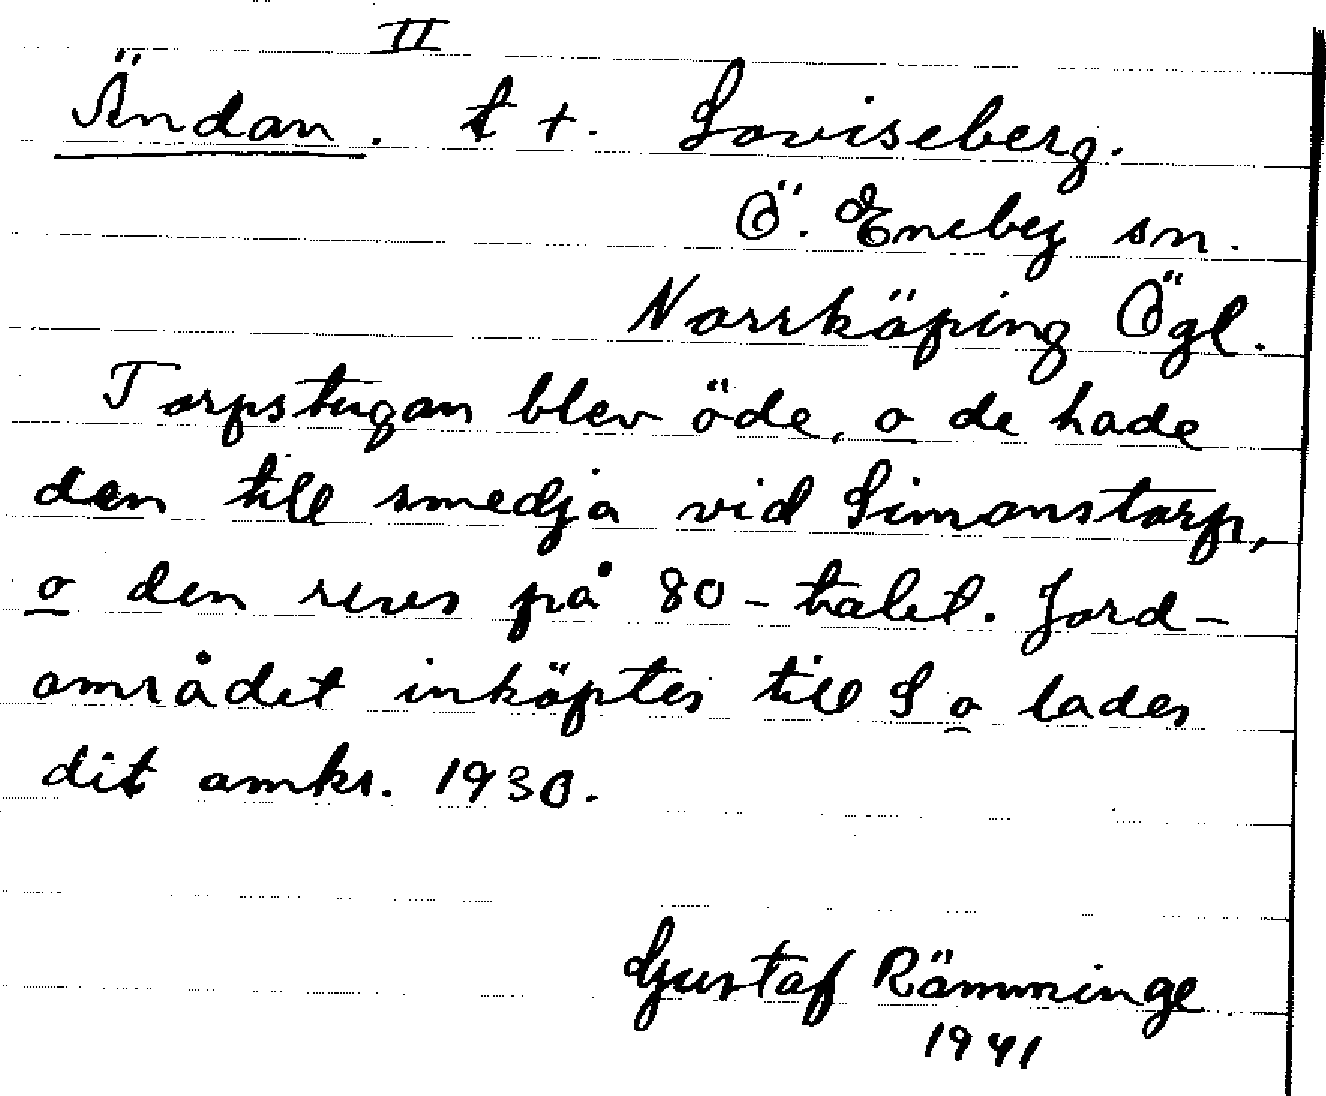 II
Ändan. t +. Loviseberg.
Ö. Eneby sn.
Norrköping Ögl.
Torpstugan blev öde, o de hade
den till smedja vid Simonstorp,
o den revs på 80-talet. Jord-
området inköptes till S o lades
dit omkr. 1930.
Gustaf Rämminge
1941